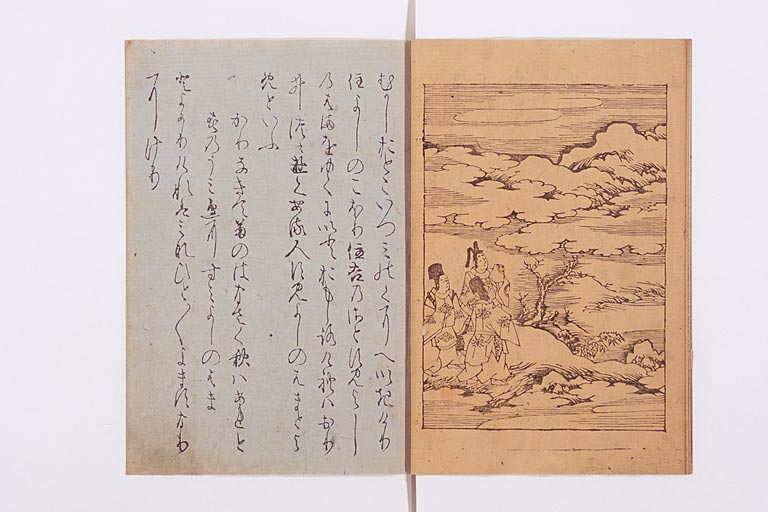 むかしおとこいつみのくにへいきけり
住よしのこほり住吉のさとすみよし
のはまをゆくにいとおもしろけれはおり
井つゝゆくある人すみよしのはまとよ
めといふ
かりなきて菊のはなさく秋はあれと
春のうみ邊にすみよしのはま
とよめりけれはみなひと〳〵よますなり
にけり